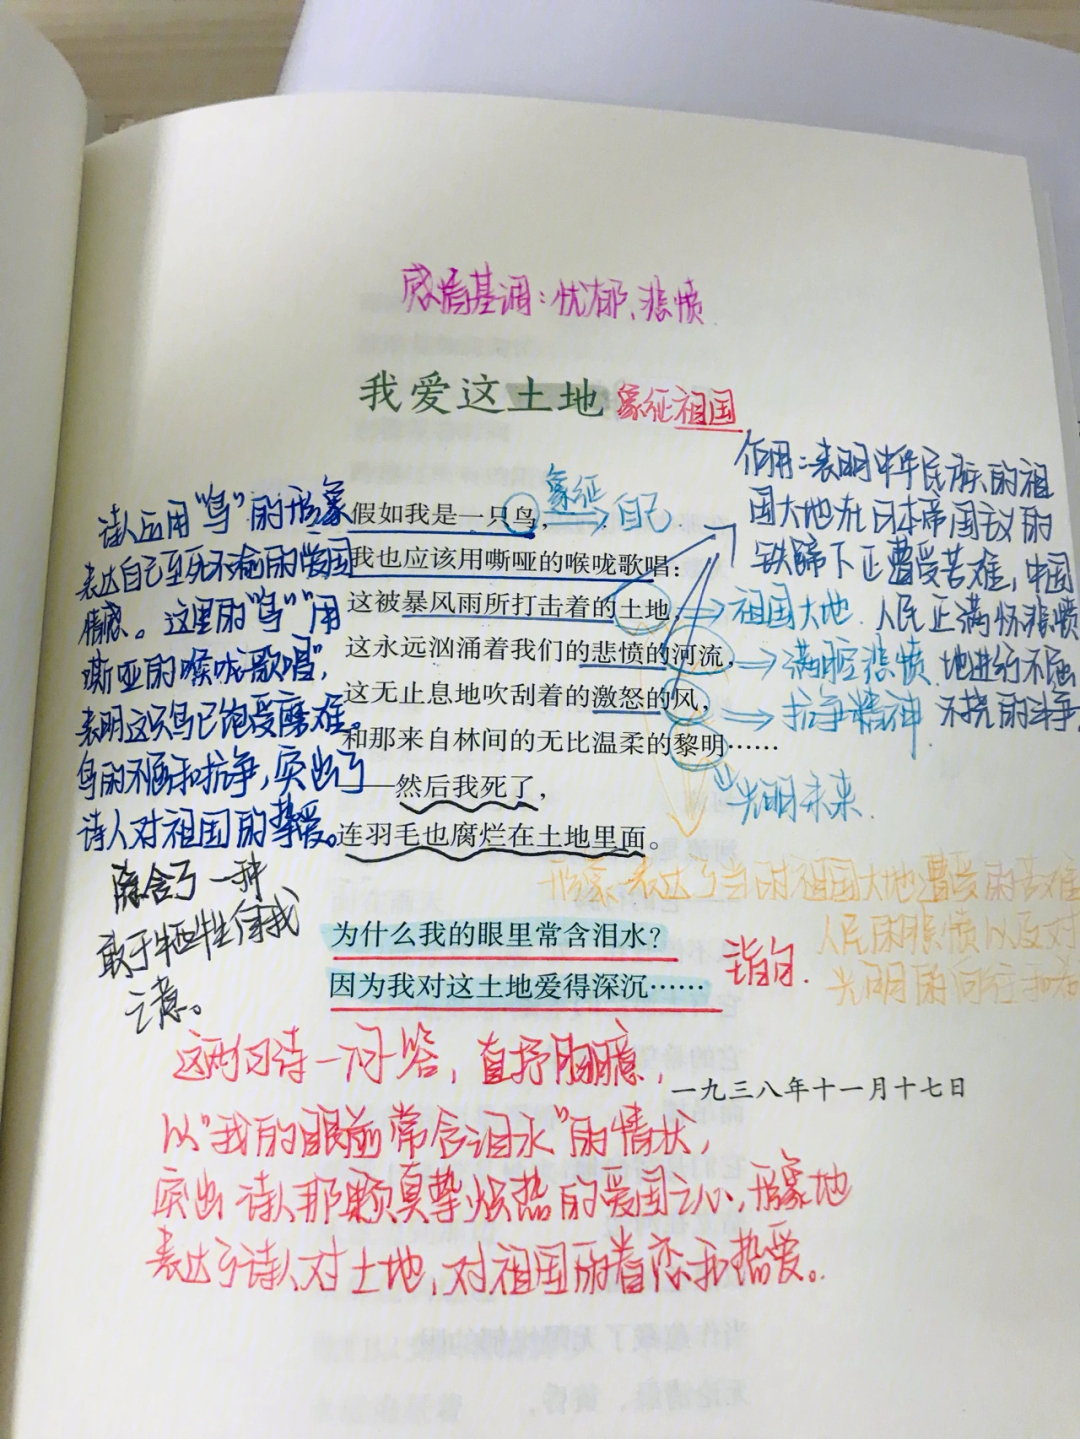 感情基调：忧郁、悲愤
我爱这土地 象征祖国
假如我是一只鸟，
象征
自己
我也应该用嘶哑的喉咙歌唱：
这被暴风雨所打击着的土地，
祖国大地
这永远汹涌着我们的悲愤的河流，
满腔悲愤
这无止息地吹刮着的激怒的风，
抗争精神
和那来自林间的无比温柔的黎明……
光明未来
——然后我死了，
连羽毛也腐烂在土地里面。
诗人运用“鸟”的形象
表达自己至死不渝的爱国
情感。这里的“鸟”“用
嘶哑的喉咙歌唱”，
表明这只鸟已饱受磨难。
鸟的不屈和抗争，突出了
诗人对祖国的挚爱。
隐含了一种
敢于牺牲自我
之意。
作用：表明中华民族的祖
国大地在日本帝国主义的
铁蹄下正遭受苦难，中国
人民正满怀悲愤
地进行不屈
不挠的斗争
形象表达了当时祖国大地遭受的苦难
人民的悲愤以及对
光明的向往和希
为什么我的眼里常含泪水？
因为我对这土地爱得深沉……
主旨句.
一九三八年十一月十七日
这两句诗一问一答，直抒胸臆，
以“我的眼前常含泪水”的情状，
突出诗人那颗真挚炽热的爱国之心，形象地
表达了诗人对土地，对祖国的眷恋和热爱。